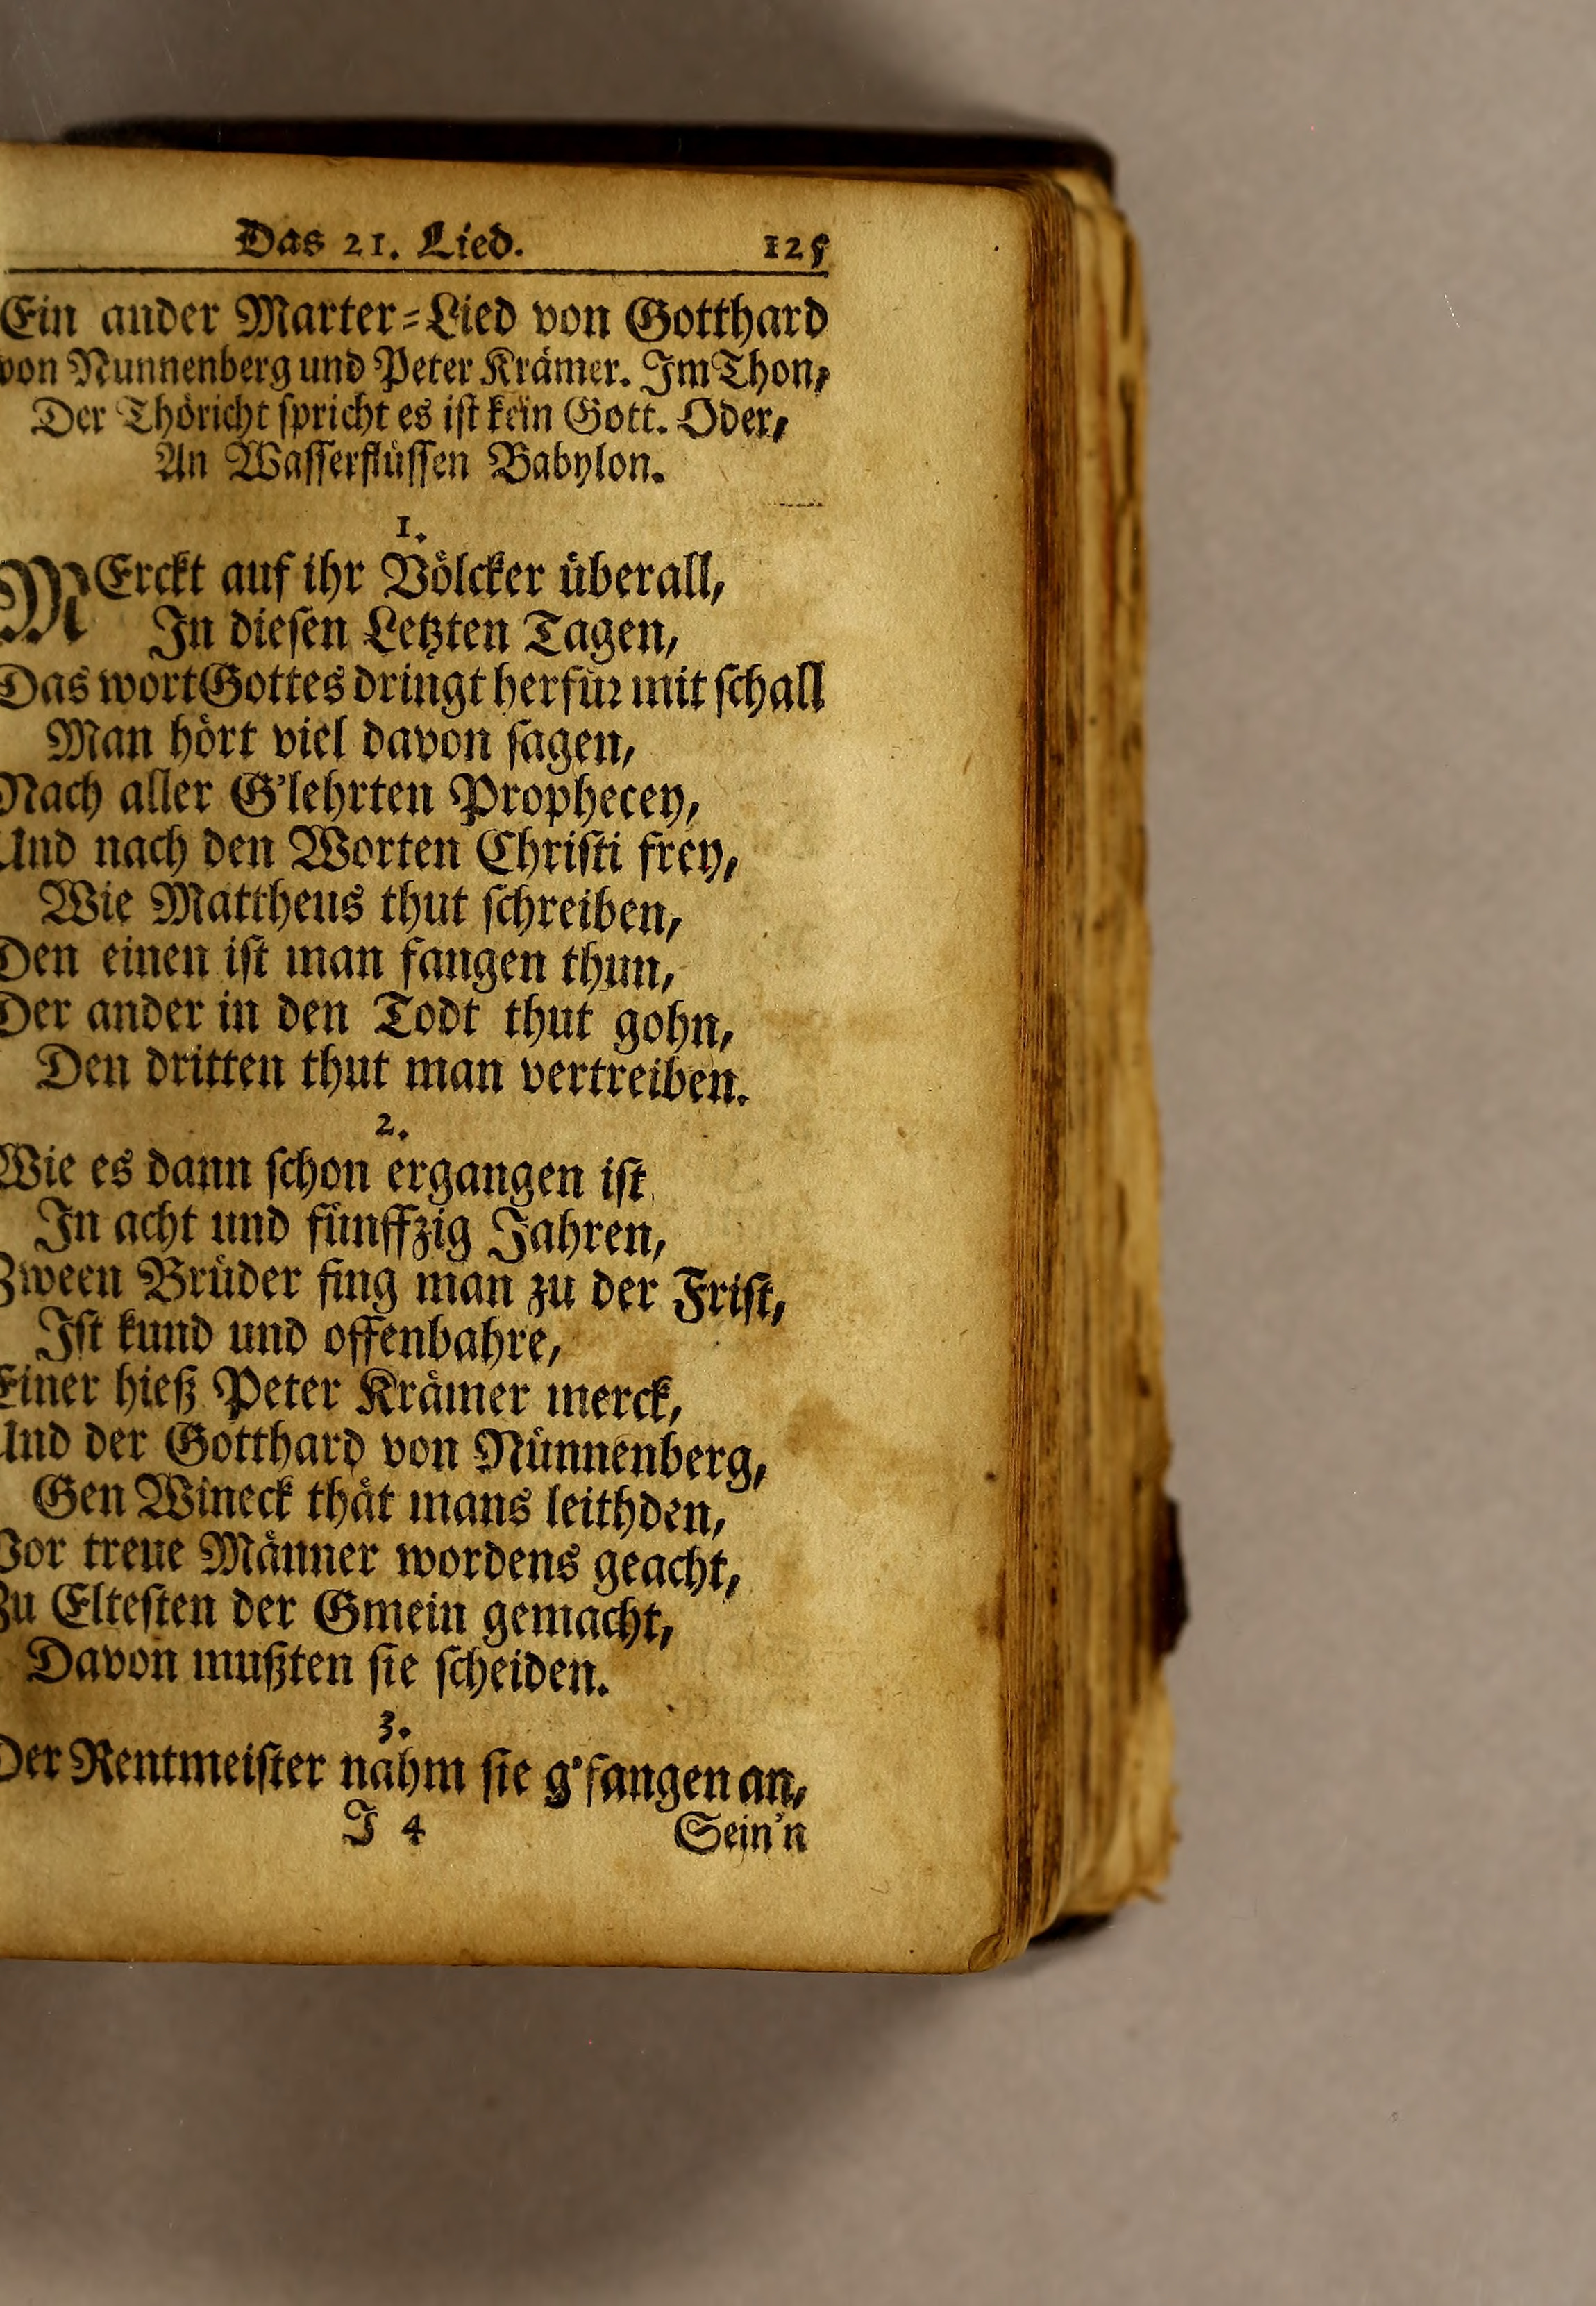 Das 21. Lied. 125
Ein ander Marter-Lied von Gotthard
von Nunnenberg und Peter Krämer. Im Thon,
Der Thöricht spricht es ist kein Gott. Oder,
An Wasserflüssen Babylon.
1.
MErckt auf ihr Völcker überall,
In diesen Letzten Tagen,
Das wort Gottes dringt herfür mit schall
Man hört viel davon sagen,
Nach aller G'lehrten Prophecey,
Und nach den Worten Christi frey,
Wie Mattheus thut schreiben,
Den einen ist man fangen thun,
Der ander in den Todt thut gohn,
Den dritten thut man vertreiben.
2.
Wie es dann schon ergangen ist
In acht und fünffzig Jahren,
Zween Brüder fing man zu der Frist,
Ist kund und offenbahre,
Einer hieß Peter Krämer merck,
Und der Gotthard von Nünnenberg,
Gen Wineck thät mans leithden,
Vor treue Männer wordens geacht,
Zu Eltesten der Gmein gemacht,
Davon mußten sie scheiden.
3.
Der Rentmeister nahm sie g'fangen an,
J 4 Sein'n